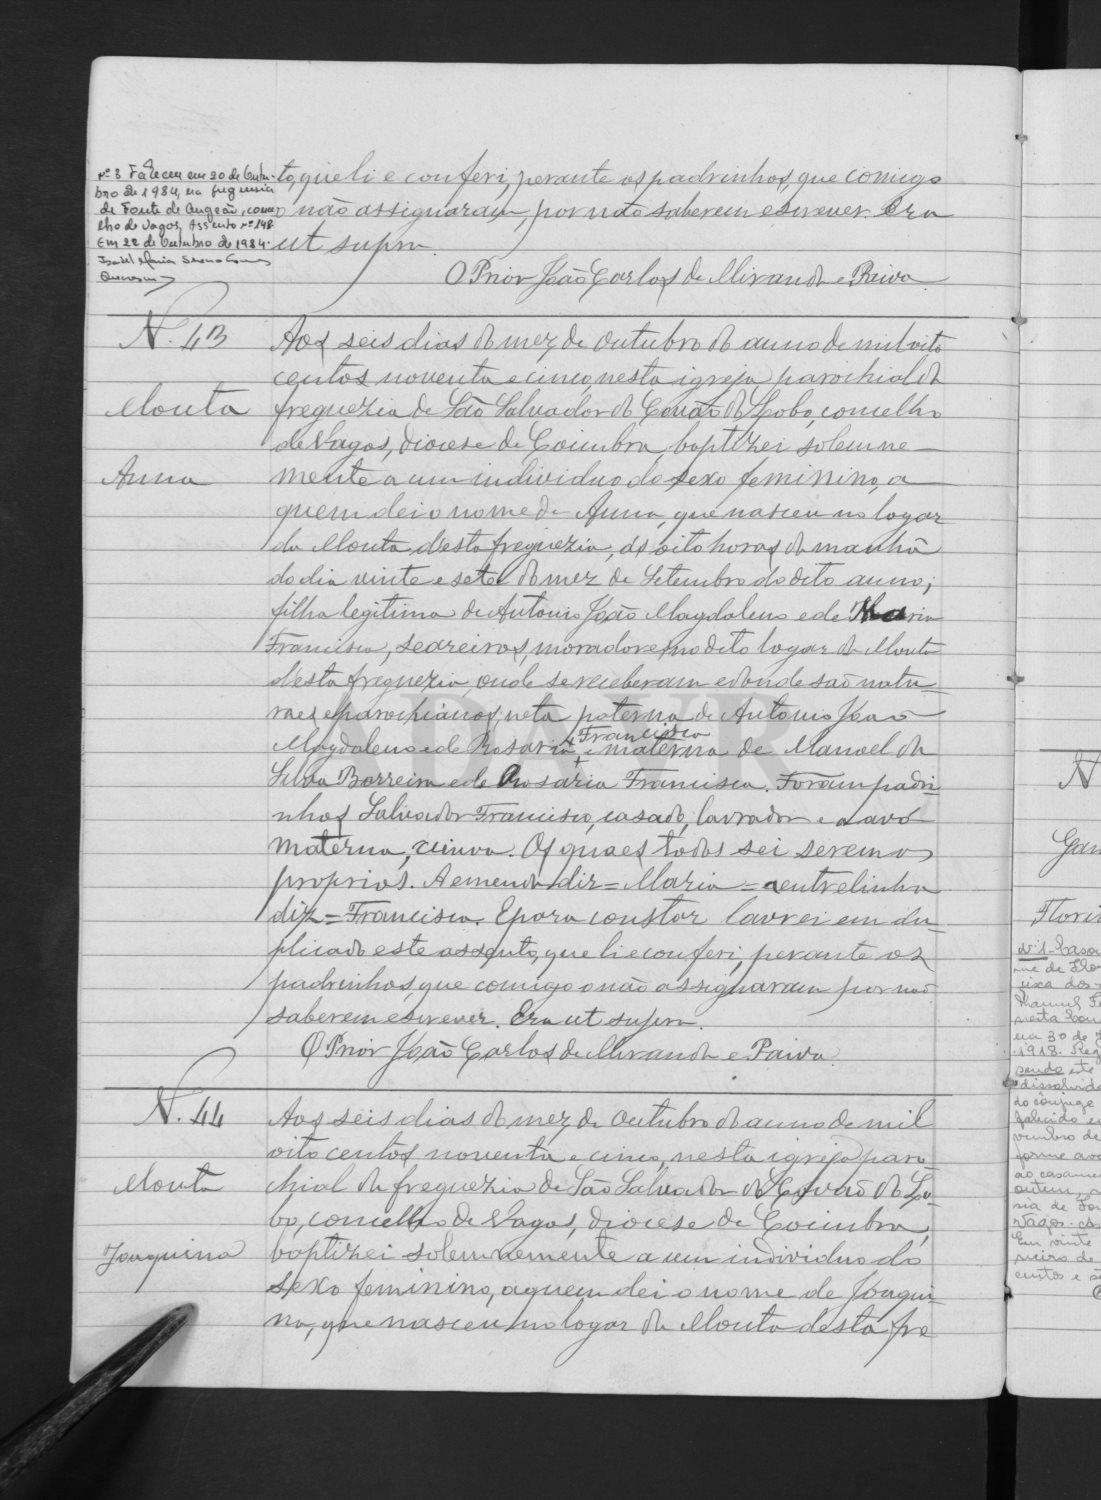 Nº 3 Faleceu em 20 de Outu-
bro de 1984, na freguesia
de Fonte de Angeão, conce-
lho de Vagos, Assento nº 148.
Em 22 de Outubro de 1984.
to, que li e conferi, perante os padrinhos, que comigo
o não assignaram, por não saberem escrever. Era
ut supra.
O Prior João Carlos de Miranda e Paiva
N. 43
Mouta
Anna
Aos seis dias do mez de Outubro do anno de mil oito
centos noventa e cinco, nesta igreja parochial da
freguezia de São Salvador do Covão do Lobo, concelho
de Vagos, diocese de Coimbra, baptizei solemne-
mente a um individuo do sexo feminino, a
quem dei o nome de Anna, que nasceu no logar
da Mouta d'esta freguezia, ás oito horas da manhã
do dia vinte e sete do mez de Setembro do dito anno;
filha legitima de Antonio João Magdaleno e de Maria
Francisca, seareiros, moradores no dito logar da Mouta
d'esta freguezia, onde se receberam e donde são natu-
raes e parochianos; neta paterna de Antonio João
Francisca
Magdaleno e de Rosaria + e materna de Manoel da
Silva Barreira e de Rosaria Francisca. Foram padri-
nhos Salvador Francisco, casado, lavrador e a avó
materna, viuva. Os quaes todos sei serem os
proprios. A emenda diz = Maria = a entrelinha
diz = Francisca. E para constar lavrei em du-
plicado este assento, que li e conferi, perante os
padrinhos, que comigo o não assignaram por não
saberem escrever. Era ut supra.
O Prior João Carlos de Miranda e Paiva
N. 44
Mouta
Joaquina
Aos seis dias do mez de Outubro do anno de mil
oito centos noventa e cinco, nesta igreja paro-
chial da freguezia de São Salvador do Covão do Lo-
bo, concelho de Vagos, diocese de Coimbra,
baptizei solemnemente a um individuo do
sexo feminino, a quem dei o nome de Joaqui-
na, que nasceu no logar da Mouta desta fre
ADAVR
N
Flori